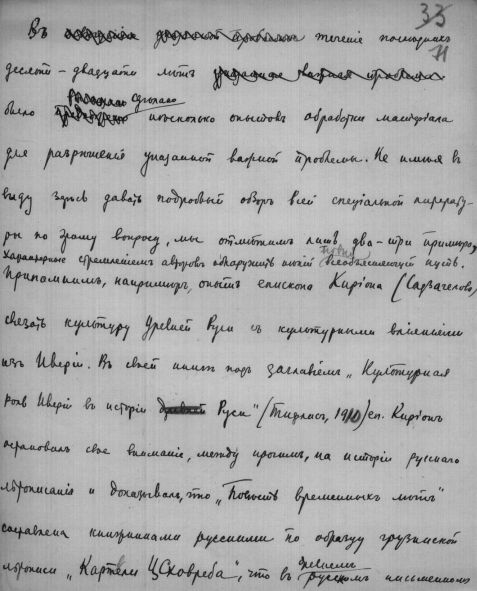 33
71
Въ теченіе последнихъ
десяти – двадцати лѣтъ
было сдѣлано нѣсколько опытовъ обработки матеріала
для разрѣшенія указанной важной проблемы. Не имѣя въ
виду здѣсь давать подробный обзоръ всей спеціальной литерату-
ры по этому вопросу, мы отмѣтимъ лишь два-три примѣра,
характерные стремленіемъ авторовъ обнаружить нѣкій всеобъясняющій пунктъ.
Припомнимъ, напримѣръ, опытъ епископа Киріона (Садзагелова)
связать культуру древней Руси съ культурными вліяніями
изъ Иверіи. Въ своей книгѣ подъ заглавіемъ „Культурная
роль Иверіи въ исторіи Руси" (Тифлисъ, 1910) еп. Киріонъ
остановилъ свое вниманіе, между прочимъ, на исторіи русскаго
лѣтописанія и доказывалъ, что „Повѣсть временныхъ лѣтъ"
составлена книжниками русскими по образцу грузинской
лѣтописи „Картели Цховреба", что въ древнемъ русскомъ письменномъ